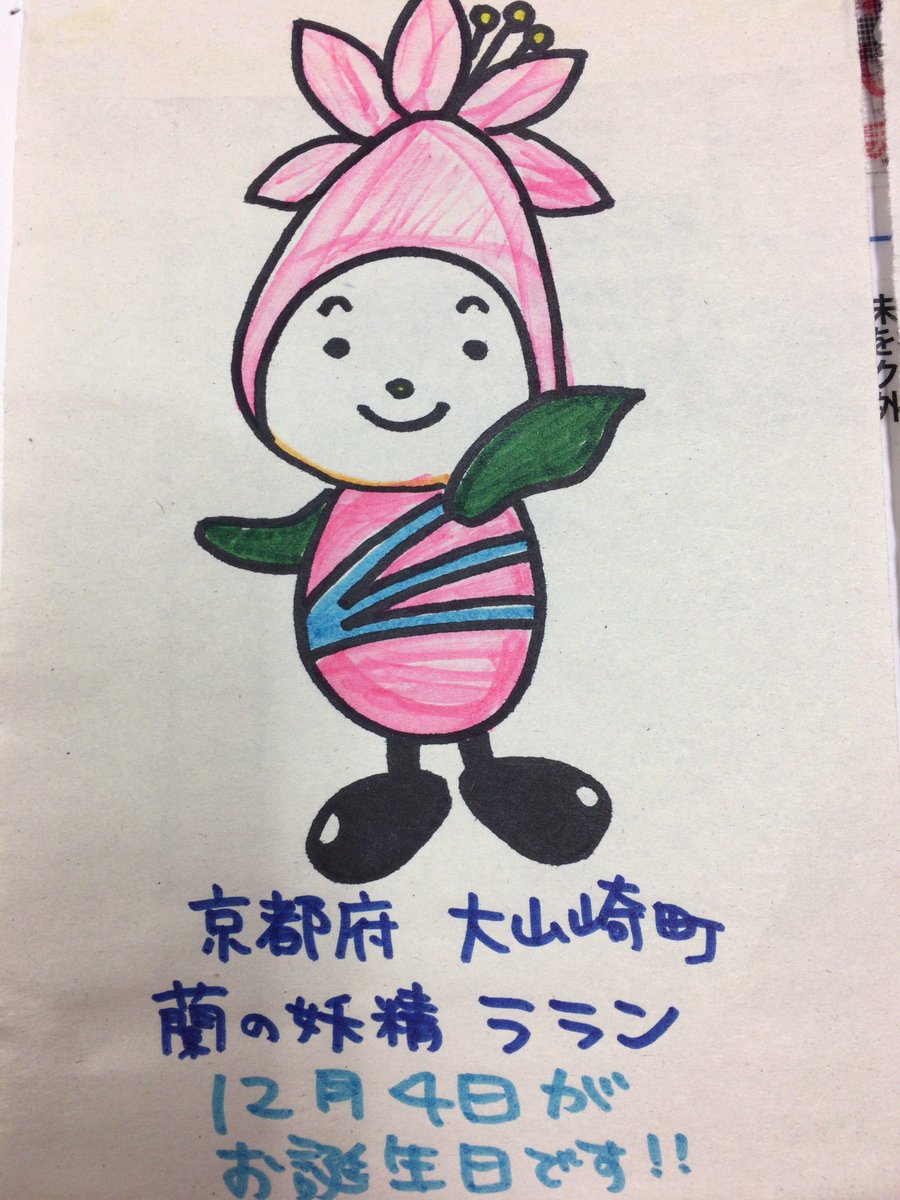 京都府 大山崎町
蘭の妖精 ララン
12月4日が
お誕生日です!!
末
をク
外